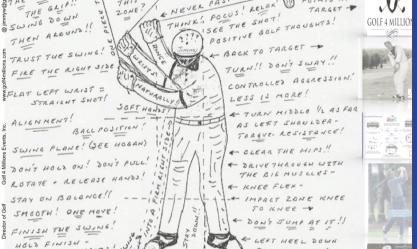 THE GRIP!!
SWING DOWN
THEN AROUND!!
TRUST THE SWING!
FIRE THE RIGHT SIDE
FLAT LEFT WRIST =
STRAIGHT SHOT!
ALIGNMENT!
BALL POSITION!
SWING PLANE! (SEE HOGAN)
DON'T HOLD ON! DON'T PULL!
ROTATE + RELEASE HANDS!
STAY ON BALANCE!!
SMOOTH! ONE MOVE!
FINISH THE SWING!
HOLD FINISH -
ZONE?
NATURALLY!
SOFT HANDS
STAY DOWN!!
NEVER
THINK, FOCUS! RELAX
SEE THE SHOT!
POSITIVE GOLF THOUGHTS!
TARGET →
← BACK TO TARGET →
TURN!! DON'T SWAY!!
CONTROLLED AGGRESSION!
LESS IS MORE!
← TURN MIDDLE 1/2 AS FAR
AS LEFT SHOULDER-
TORQUE. RESISTANCE!
← CLEAR THE HIPS!!
← DRIVE THROUGH WITH
THE BIG MUSCLES -
← KNEE FLEX-
← IMPACT ZONE KNEE
TO KNEE →
← DON'T JUMP AT IT!!
← LEFT HEEL DOWN
Director of Golf
Golf 4 Millions Events, Inc.
www.golf4millions.com
GOLF 4 MILLIONS